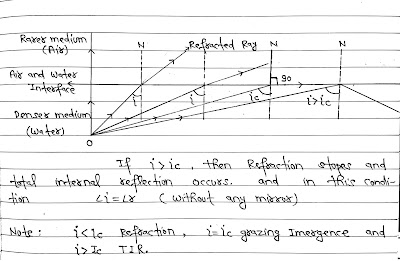 Rarer medium
(Air)
N
Refracted Ray
N
N
N
Air and water
Interface
i
i
ic
90
i>ic
Denser medium
(Water)
O
If i>ic, then Refraction stopes and
total internal reflection occurs. and in this condi-
tion ∠i=∠r (without any mirror)
Note: i<ic Refraction, i=ic grazing Imergence and
i>Ic TIR.